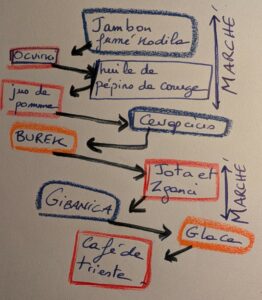 Jambon
fumé Kodila
MARCHÉ
Ocvirki
huile de
pépins de courge
jus de
pomme
BUREK
Jota et
Zganci
MARCHÉ
GIBANICA
Glace
Café de
trieste